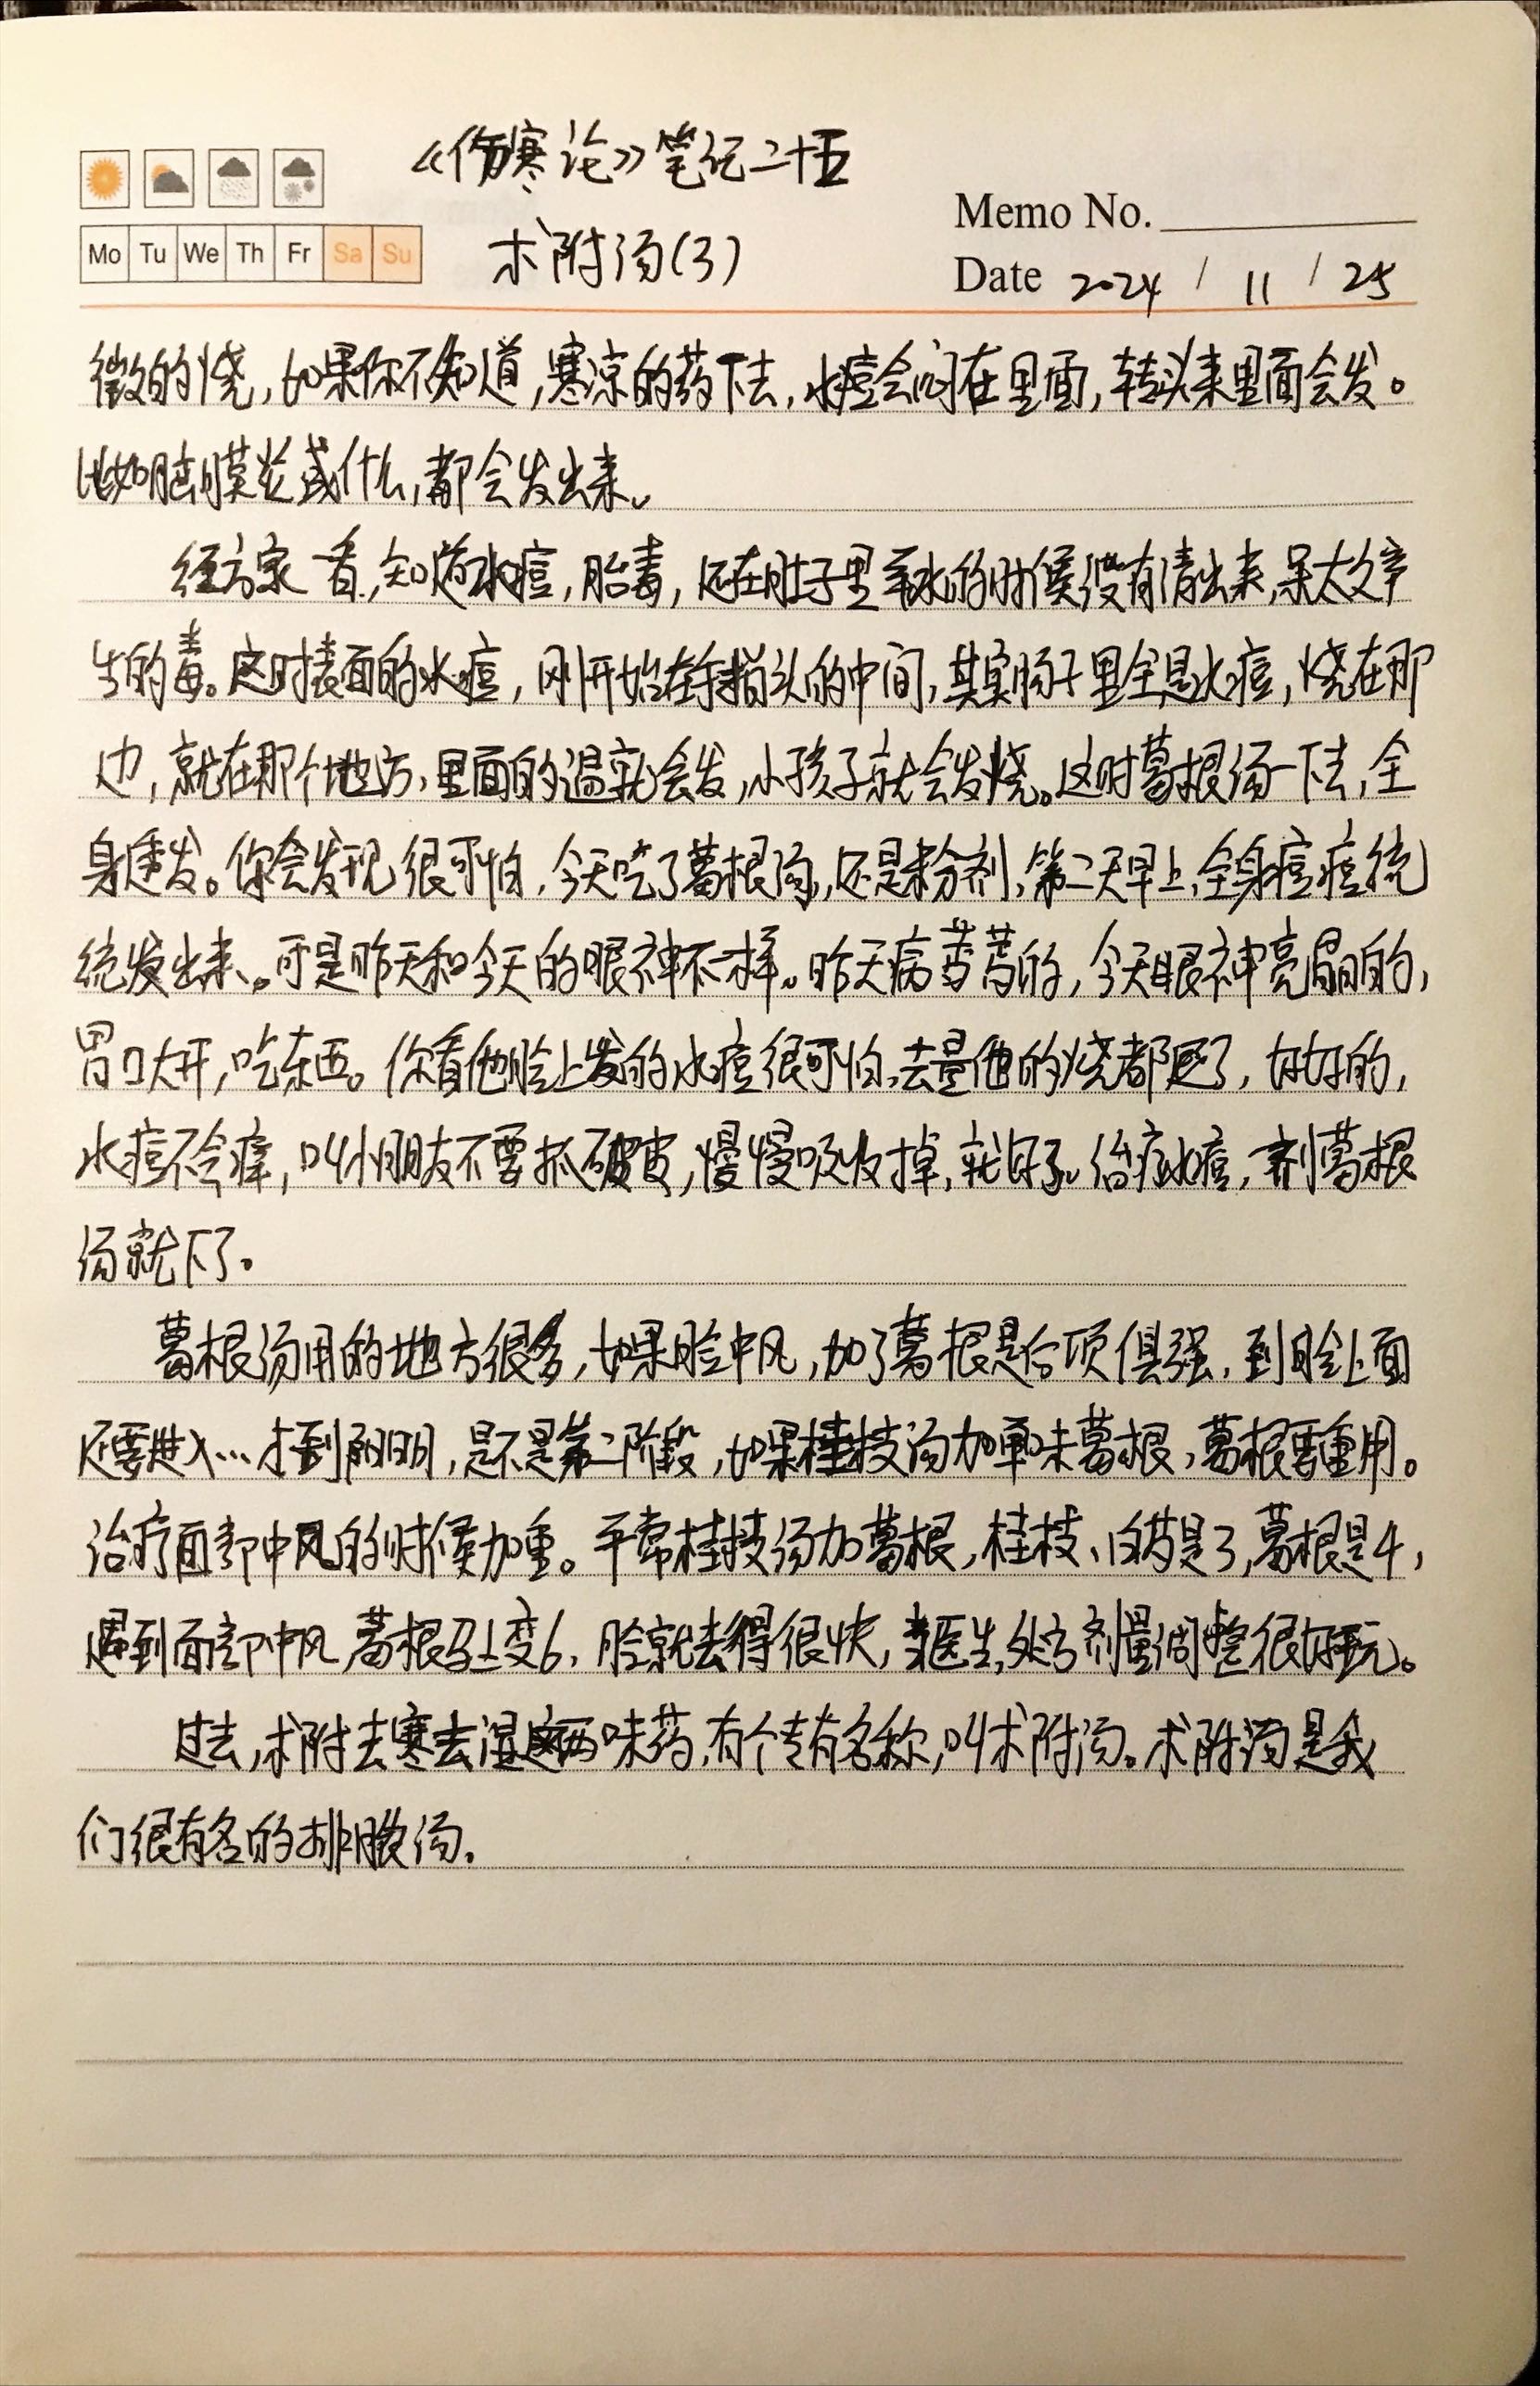 《伤寒论》笔记二十五
术附汤(3)
Memo No.
Mo Tu We Th Fr Sa Su
Date 2024 / 11 / 25
微的烧,如果你不知道,寒凉的药下去,水痘会闷在里面,转头来里面会发。
比如脑膜炎或什么,都会发出来。
经方家一看,知道水痘,胎毒,还在肚子里羊水的时候没有清出来,呆太久产
生的毒。这时表面的水痘,刚开始在手指头的中间,其实肠子里全是水痘,烧在那
边,就在那个地方,里面的温就会发,小孩子就会发烧。这时葛根汤一下去,全
身透发。你会发现很可怕,今天吃了葛根汤,还是粉剂,第二天早上,全身痘痘统
统发出来。可是昨天和今天的眼神不一样。昨天病蔫蔫的,今天眼神亮晶晶的,
胃口大开,吃东西。你看他脸上发的水痘很可怕,去是他的烧都退了,好好的,
水痘不会痒,叫小朋友不要抓破皮,慢慢吸收掉,就好了。治疗水痘,一剂葛根
汤就下了。
葛根汤用的地方很多,如果脸中风,加了葛根是后项俱强,到脸上面
还要进入…才到阳明,是不是第二阶段,如果桂枝汤加单味葛根,葛根要重用。
治疗面部中风的时候加重。平常桂枝汤加葛根,桂枝、白芍是3,葛根是4,
遇到面部中风,葛根马上变6,脸就去得很快,当医生,处方剂量调整很好玩。
过去,术附去寒去湿这两味药,有个专有名称,叫术附汤。术附汤是我
们很有名的排脓汤.